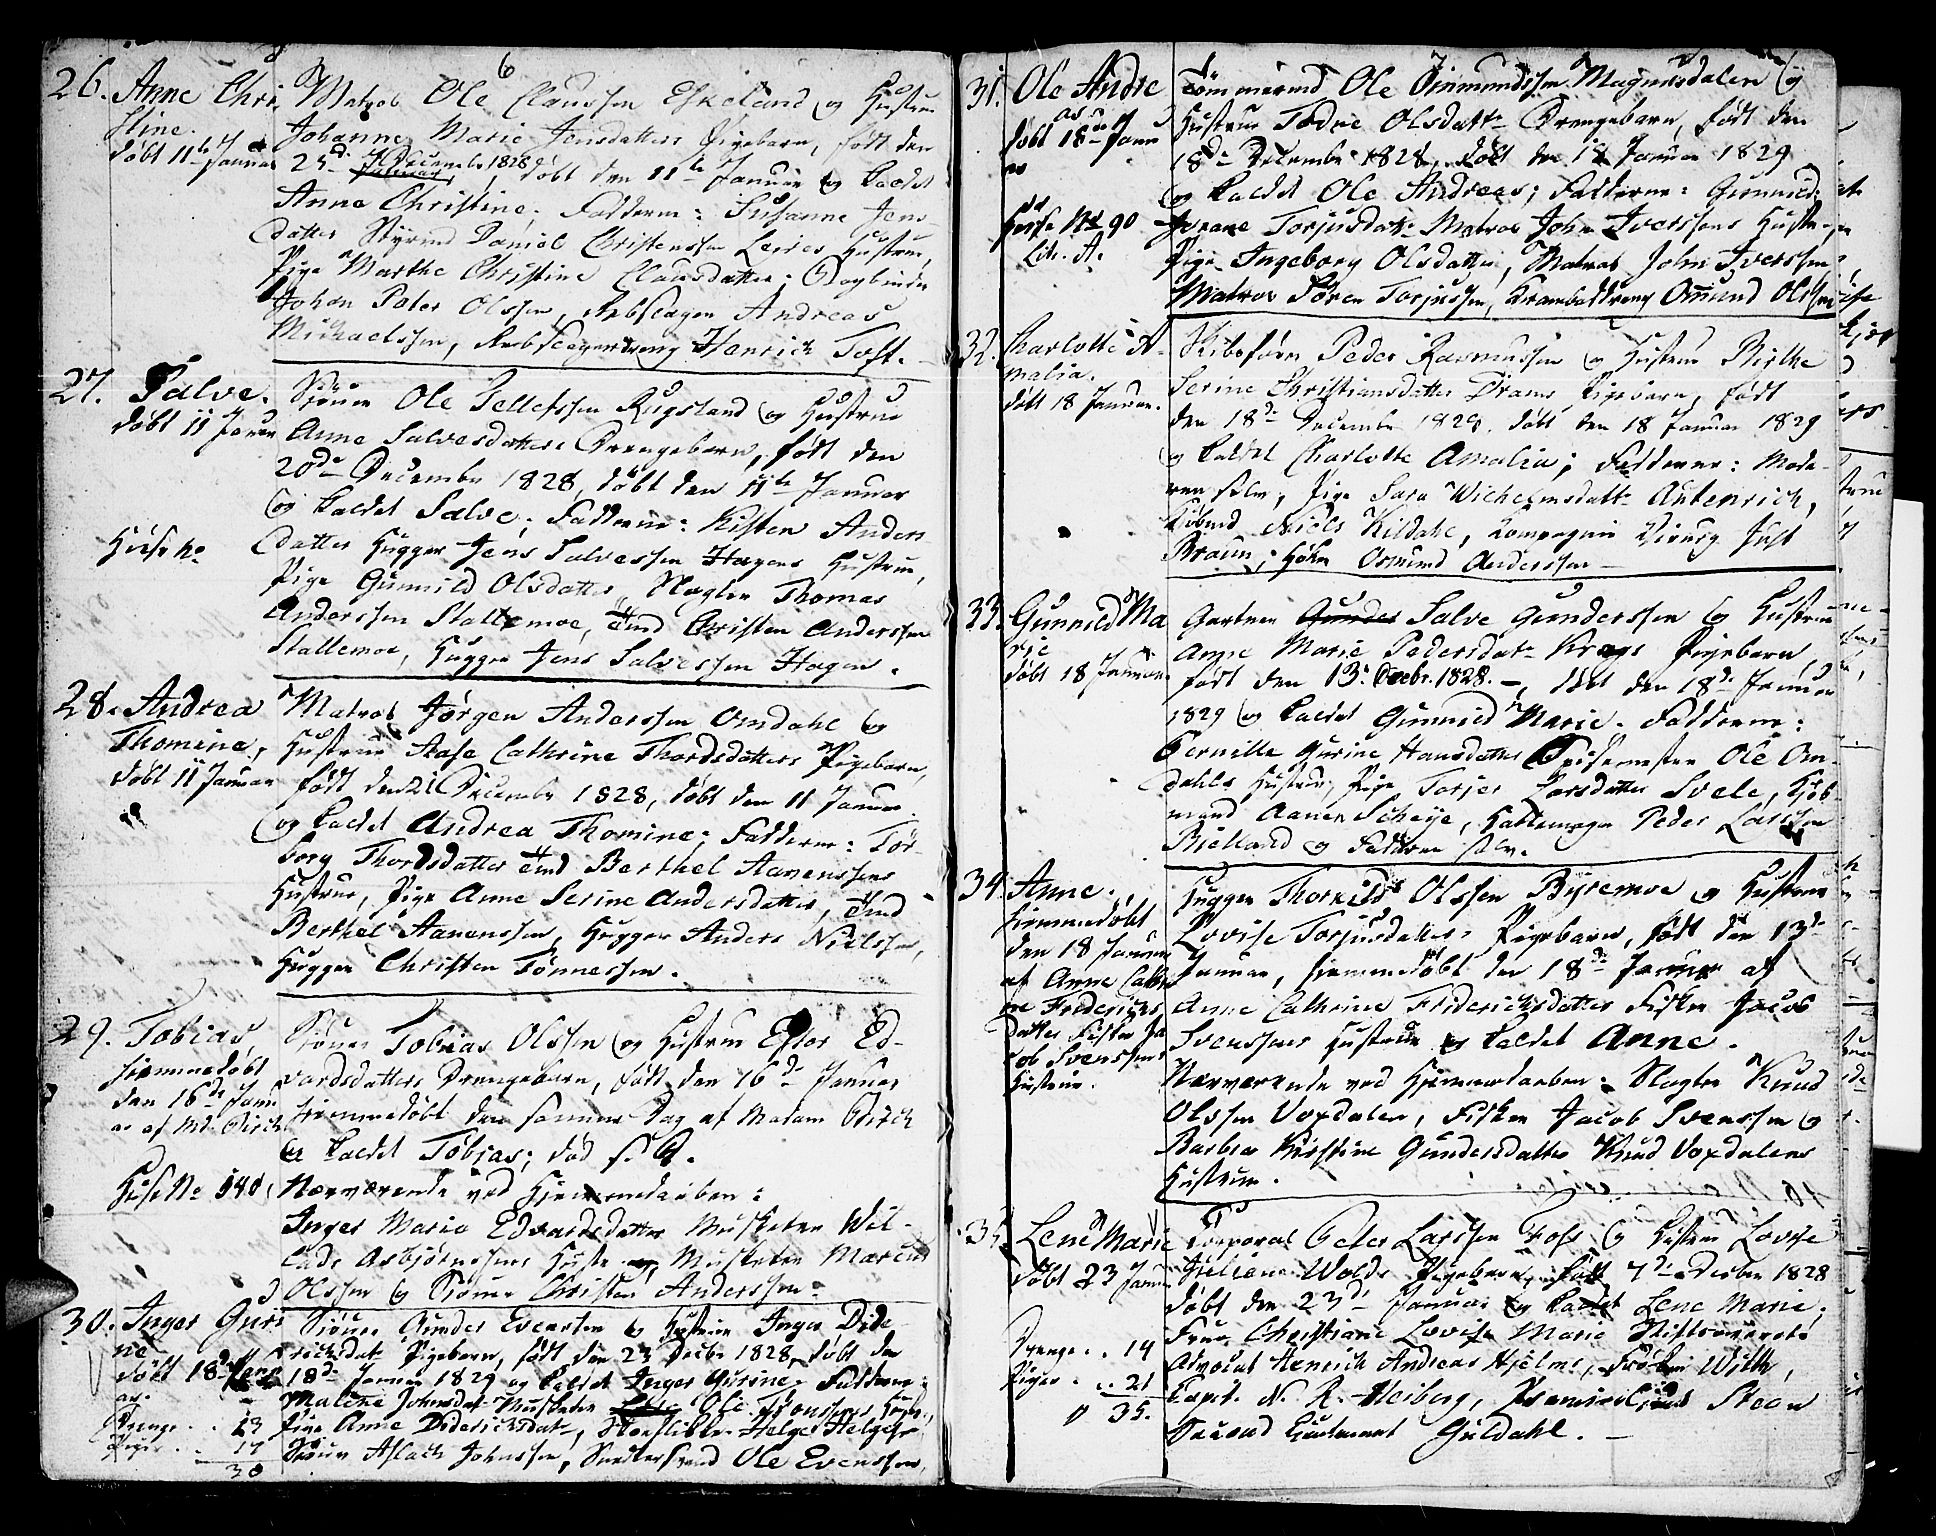 6
26. Anne Chri
stine.
döbt 11te Januar
Matros Ole Claussen Eskeland og Hustrue
Johanne Marie Jensdatters Pigebarn, født den
25de December 1828, døbt den 11te Januar og kaldet
Anne Christine; Fadderne: Susanne Jens
datter Styrmd Daniel Christenssen Leires Hustrue,
Pige Marthe Christine Clausdatter; Bogbinder
Johan Peter Olssen, Rebslager Andreas
Michaelssen, Rebslagerdreng Henrich Toft.
27. Salve.
døbt 11 Januar
Huus No
Sjöm Ole Sellefssen Rugsland og Hustrue
Anne Salvesdatters Drengebarn, født den
20de December 1828, døbt den 11te Januar
og kaldet Salve; Fadderne: Kisten Anders
datter Hugger Jens Salvessen Hagens Hustrue,
Pige Gunnild Olsdatter, Slagter Thomas
Anderssen Stallemoe, Tmd Christen Anderssen
Stallemoe, Hugger Jens Salvessen Hagen.
28. Andrea
Thomine,
døbt 11 Januar
Matros Jørgen Anderssen Omdahl og
Hustrue Aase Cathrine Thordsdatters Pigebarn,
født den 21 December 1828, døbt den 11 Januar
og kaldet Andrea Thomine; Fadderne: Tor
borg Thordsdatter Tmd Berthel Aanenssens
Hustrue, Pige Anne Serine Andersdatter, Tmd
Berthel Aanenssen, Hugger Anders Nielssen,
Hugger Christen Tønnessen.
29. Tobias,
hiemmedøbt
den 16de Janu
ar af Md. Birch
Huus No 540
Sjöm Tobias Olssen og Hustrue Ester Ed-
vardsdatters Drengebarn, født den 16de Januar
hiemmedøbt den samme Dag af Madam Birch
og kaldet Tobias; død s. D.
Nærværende ved Hjemmedaaben:
Inger Marie Edvardsdatter Musketeer Wil-
lads Asbjørnssens Hustr. og Musketeer Marcus
Olssen og Sjöm Christen Anderssen.
30. Inger Guri
ne
døbt 18de Janu
ar.
Drenge .. 13
Piger .. 17
30
Sjöm Gunder Evensen og Hustrue Inger Dide
richsdat. Pigebarn, født den 23 Decbr 1828, døbt den
18de Januar 1829 og kaldet Inger Gurine. Fadderne:
Malene Johnsdat. Musketeer Ole Tronssens Hustr.,
Pige Anne Diderichsdat., Helge Helgess
Sjöm Aslach Johnssen, Snedkersvend Ole Evenssen,
7
31. Ole Andre
as
døbt 18de Janu
ar
Huus No 90
Lit. A.
Tømmermd Ole Omundssen Magnusdalen og
Hustrue Todne Olsdatts Drengebarn, født den
18de December 1828, døbt den 18 Januar 1829
og kaldet Ole Andreas; Fadderne: Gunnild
Torjusdatr Matros John Iverssens Hustr.
Pige Ingeborg Olsdatter, Matros John Iverssen,
Matros Søren Torjussen, Krambodreng Omund Olssen
32. Charlotte A-
malia.
døbt 18 Januar.
Skibsfører Peder Rasmussen og Hustrue Birthe
Serine Christiansdatter Drams Pigebarn, født
den 18de December 1828. døbt den 18 Januar 1829
og kaldet Charlotte Amalia; Fadderne: Mode-
ren selv, Pige Sara Wilhelmsdatr Autenrich,
Kiøbmd Niels Kildahl, Compagnie Chirurg Just
Braun, Høker Osmund Anderssen
33. Gunnild Ma
rie
døbt 18 Januar.
Gartner Gunder Salve Gunderssen og Hustrue
Anne Marie Pedersdatr Krags Pigebarn,
født den 13. Decbr. 1828. –, døbt den 18de Januar
1829 og kaldet Gunnild Marie. Fadderne:
Pernille Gurine Hansdatter Spisemester Ole Om-
dahls Hustrue, Pige Torjer Larsdatter Svele, Kiøb-
mand Aanen Scheije, Hattemager Peder Larssen
Bielland og Faderen selv.
34. Anne.
hiemmedøbt
den 18 Januar
af Anne Cathri
ne Frederichs
datter Fisker Ja
cob Svenssens
Hustrue.
Hugger Thorkild Olssen Byremoe og Hustrue
Lovise Torjusdatters Pigebarn, født den 13de
Januar, hiemmedøbt den 18de Januar af
Anne Cathrine Friderichsdatter Fisker Jacob
Svenssens Hustrue og kaldet Anne.
Nærværende ved Hjemmedaaben: Slagter Knud
Olssen Voxdalen, Fisker Jacob Svenssen og
Barbra Kirstine Gundersdatter Knud Voxdalens
Hustrue.
35. Lene Marie
døbt 23 Januar
Drenge .. 14
Piger .. 21
35.
Corporal Peter Larssen Foss og Hustrue Lovise
Juliane Wolds Pigebarn, født 7de Decber 1828
døbt den 23de Januar og kaldet Lene Marie;
Frue Christiane Lovise Marie Stiftsoverrets
Advocat Henrich Andreas Hjelms, Frøken With,
Capit. N. R. Heiberg, Premierlieut Steen
Second Lieutenant Guldahl. –